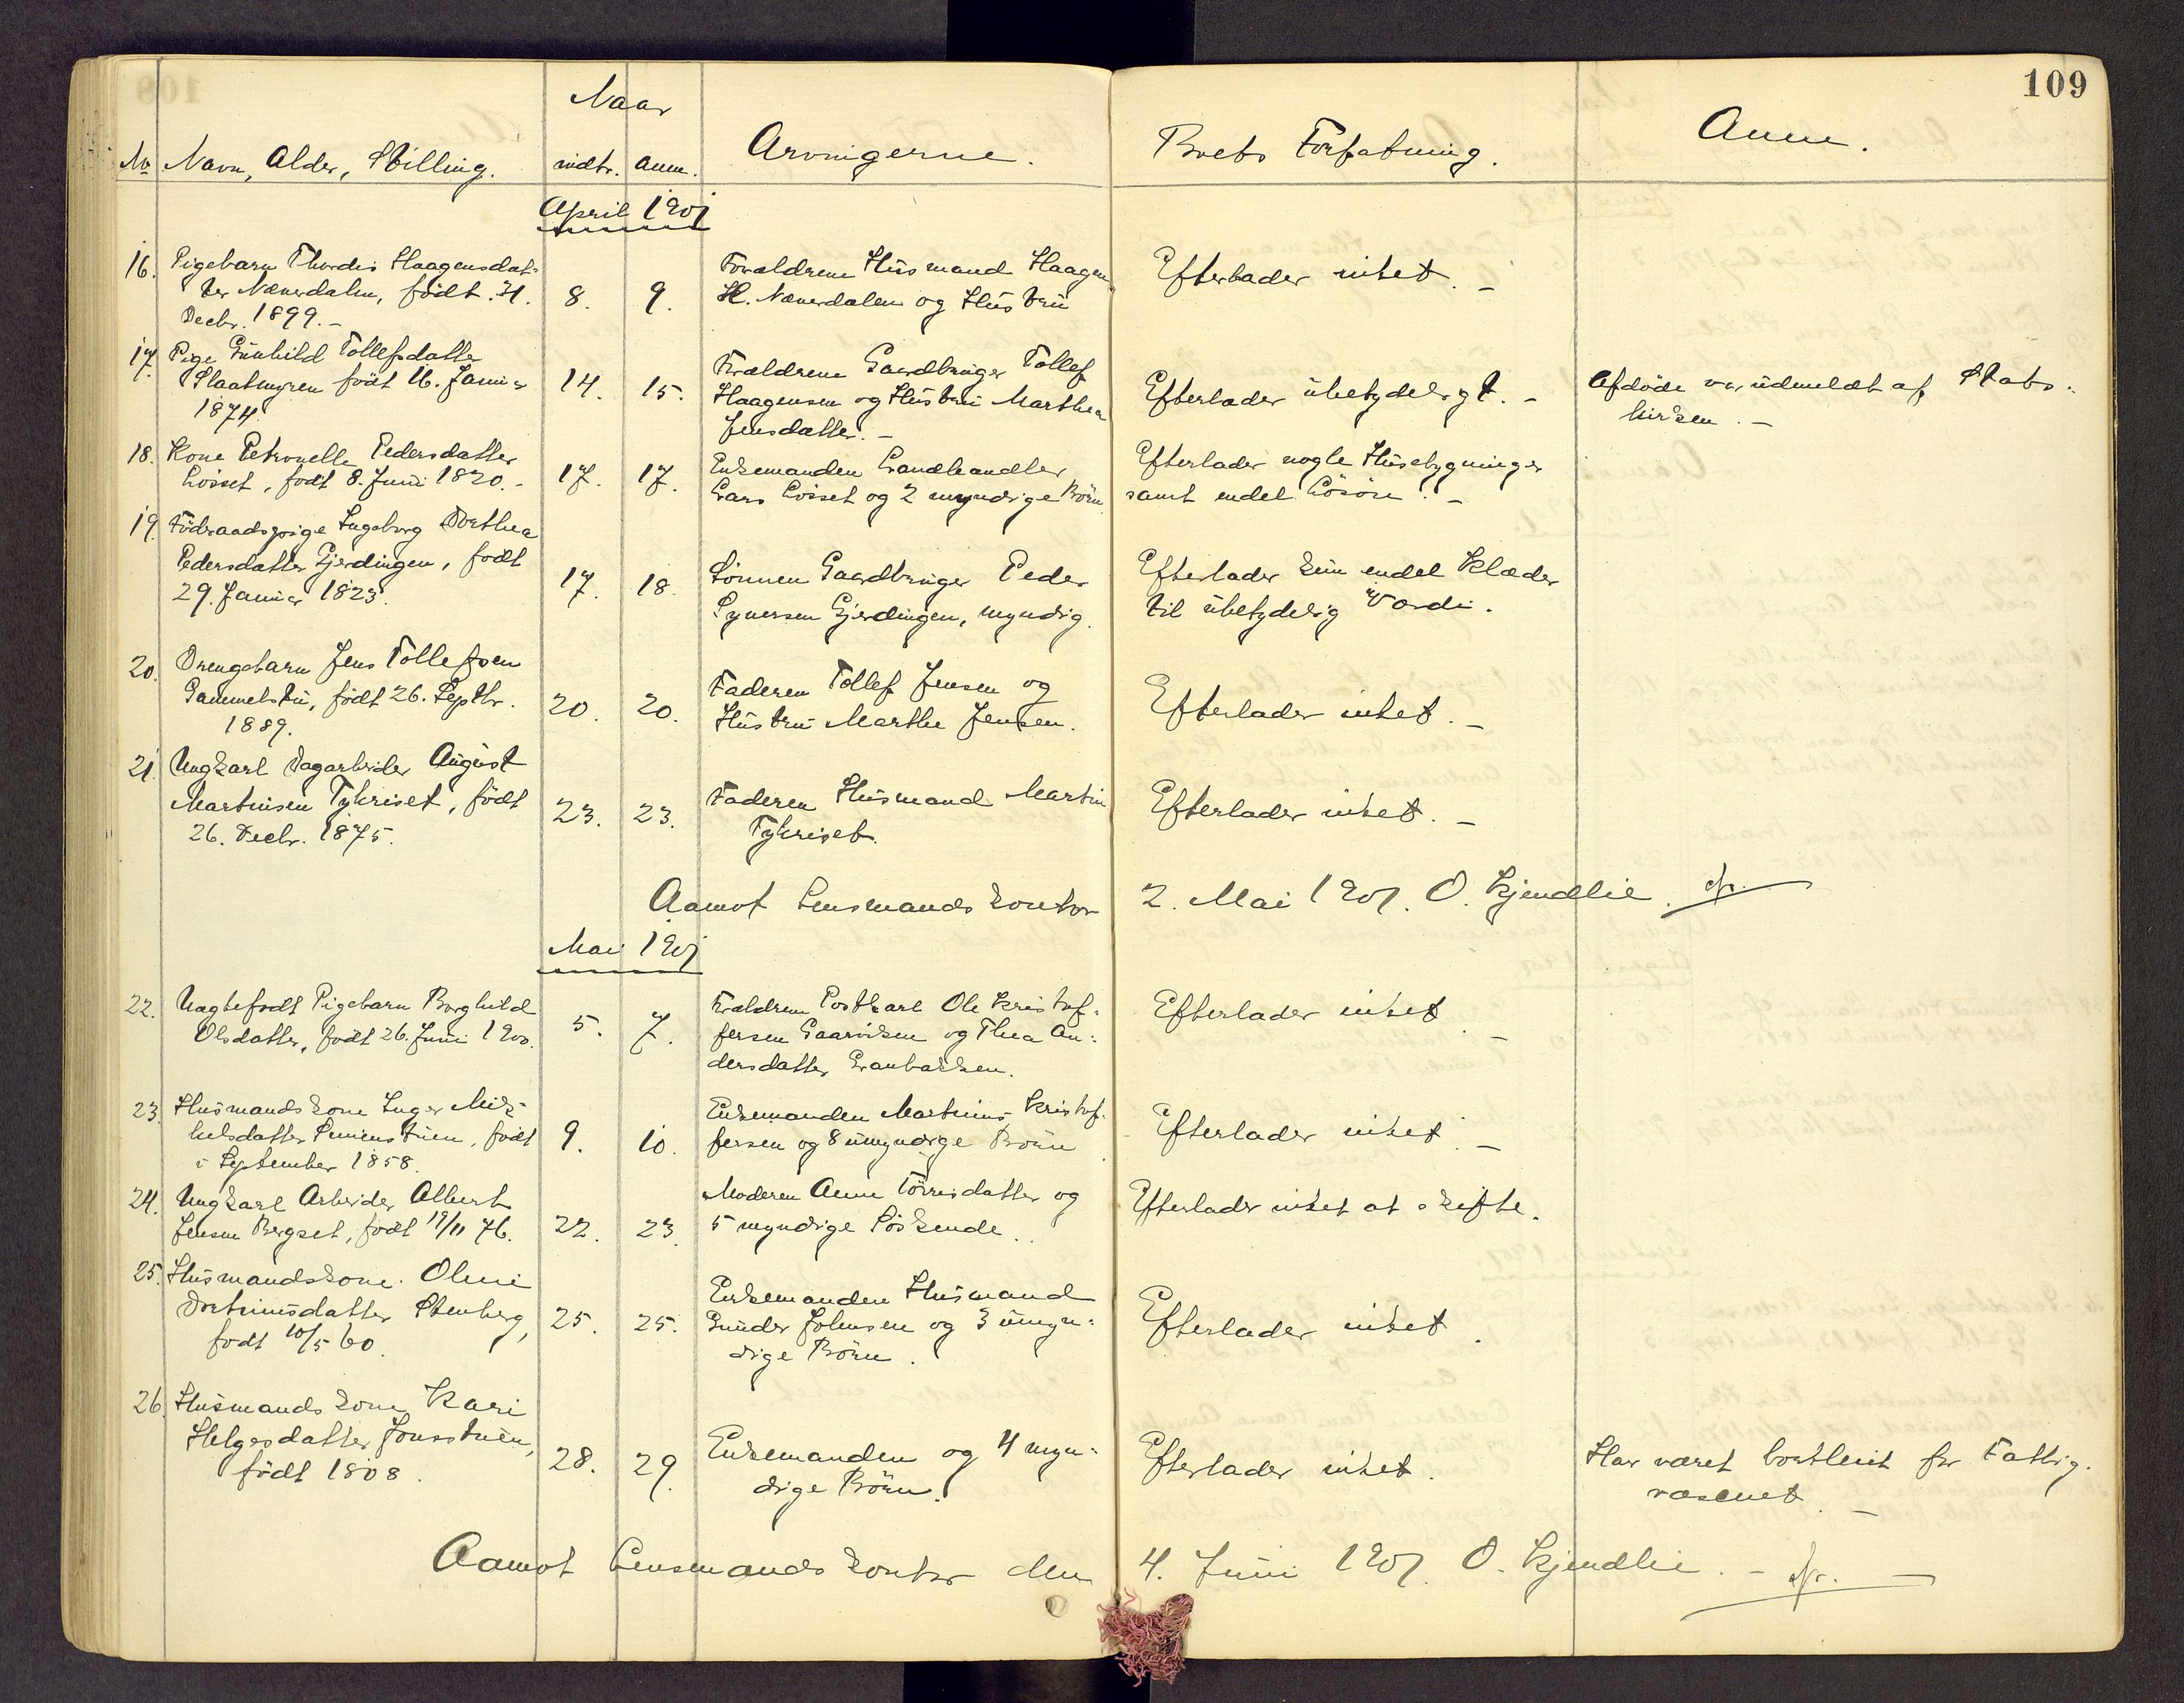 109
Naar
No Navn, Alder, Stilling. indtr. anm. Arvingerne. Boets Forfatning. Anm.
April 1901
16. Pigebarn Thordis Haagensdat-
ter Næverdalen, födt 31.
Decbr. 1899. –
8. 9.
Forældrene Husmand Haagen
H. Næverdalen og Hustru
Efterlader intet. –
17. Pige Gunhild Tollefsdatter
Slaatmyren födt 16. Januar
1874.
14. 15.
Forældrene Gaardbruger Tollef
Haagensen og Hustru Marthea
Jensdatter. –
Efterlader ubetydeligt. –
Afdöde var udmeldt af Stats-
kirken. –
18. Kone Petronelle Pedersdatter
Losset, födt 8. Juni 1820. –
17. 17.
Enkemanden Landhandler
Lars Losset og 2 myndige Börn
Efterlader nogle Husebygninger
samt endel Lösöre. –
19. Föderaadspige Ingeborg Dorthea
Pedersdatter Gjerdingen, födt
29. Januar 1823.
17. 18.
Sönnen Gaardbruger Peder
Syversen Gjerdingen, myndig.
Efterlader kun endel Klæder
til ubetydelig Værdi.
20. Drengebarn Jens Tollefsen
Gammelstu, födt 26. Septbr.
1889.
20. 20.
Faderen Tollef Jensen og
Hustru Marthe Jensen.
Efterlader intet. –
21. Ungkarl Dagarbeider August
Martinsen Tyhriset, födt
26. Decbr. 1875.
23. 23.
Faderen Husmand Martin
Tyhriset.
Efterlader intet. –
Aamot Lensmandskontor 2. Mai 1901. O. Kjendlie.
Mai 1901
22. Uægtefödt Pigebarn Borghild
Olsdatter, födt 26. Juni 1900.
5. 7.
Forældrene Postkarl Ole Kristof-
fersen Gaarviken og Thea An-
dersdatter Granbakken.
Efterlader intet. –
23. Husmandskone Inger Mik-
kelsdatter, födt
i September 1858.
9. 10.
Enkemanden Martinus Kristof-
fersen og 8 umyndige Börn.
Efterlader intet. –
24. Ungkarl Arbeider Albert
Jensen Bergset, födt 19/11 76.
22. 23.
Moderen Anne Törrisdatter og
5 myndige Söskende.
Efterlader intet at skifte.
25. Husmandskone Oline
Dortriusdatter Stenberg,
födt 10/5 60.
25. 25.
Enkemanden Husmand
Gunder Johnsen og 3 umyn-
dige Börn.
Efterlader intet.
26. Husmandskone Kari
Helgesdatter Jonsstuen,
födt 1808.
28. 29.
Enkemanden og 4 myn-
dige Börn.
Efterlader intet.
Har været bortleiet for Fattig-
væsenet. –
Aamot Lensmandskontor den 4. Juni 1901. O. Kjendlie. –